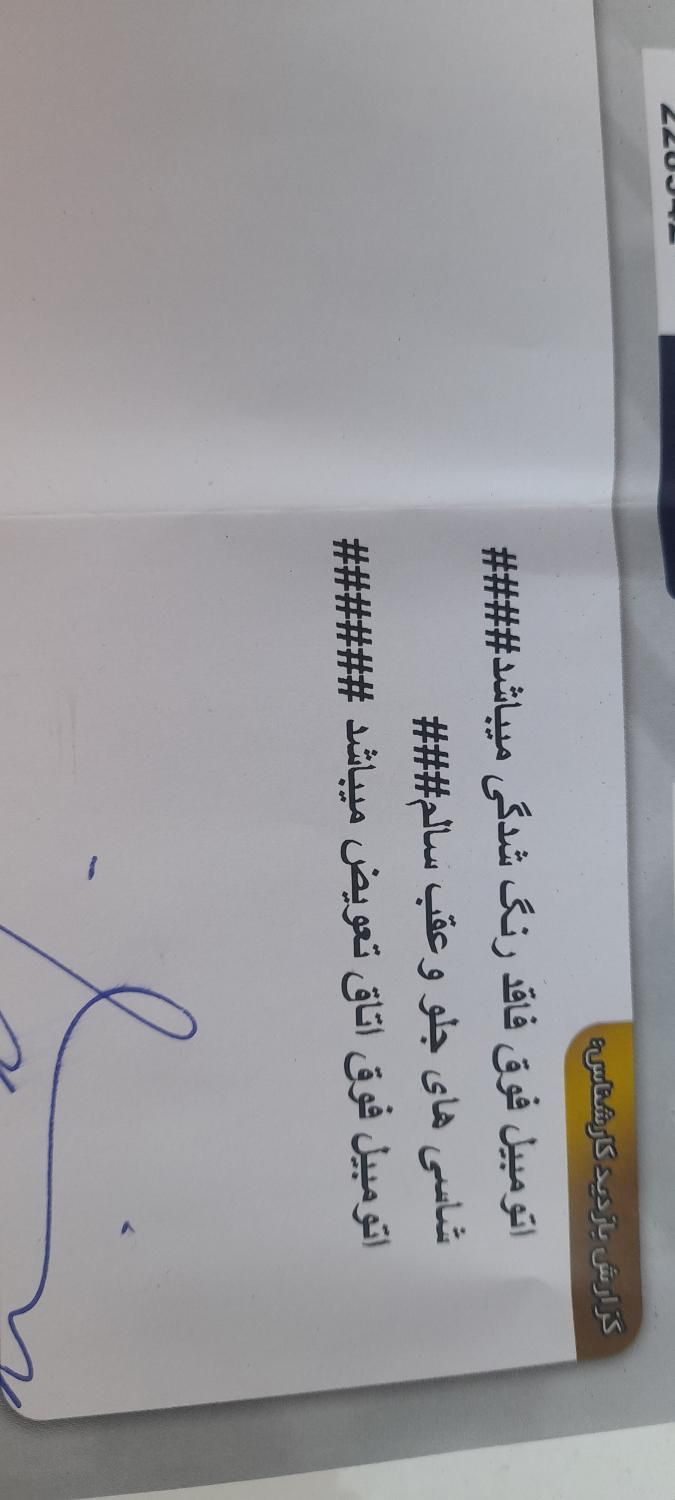 گزارش بازدید کارشناس:
اتومبیل فوق فاقد رنگ شدگی میباشد####
شاسی های جلو و عقب سالم###
اتومبیل فوق اتاق تعویض میباشد #######